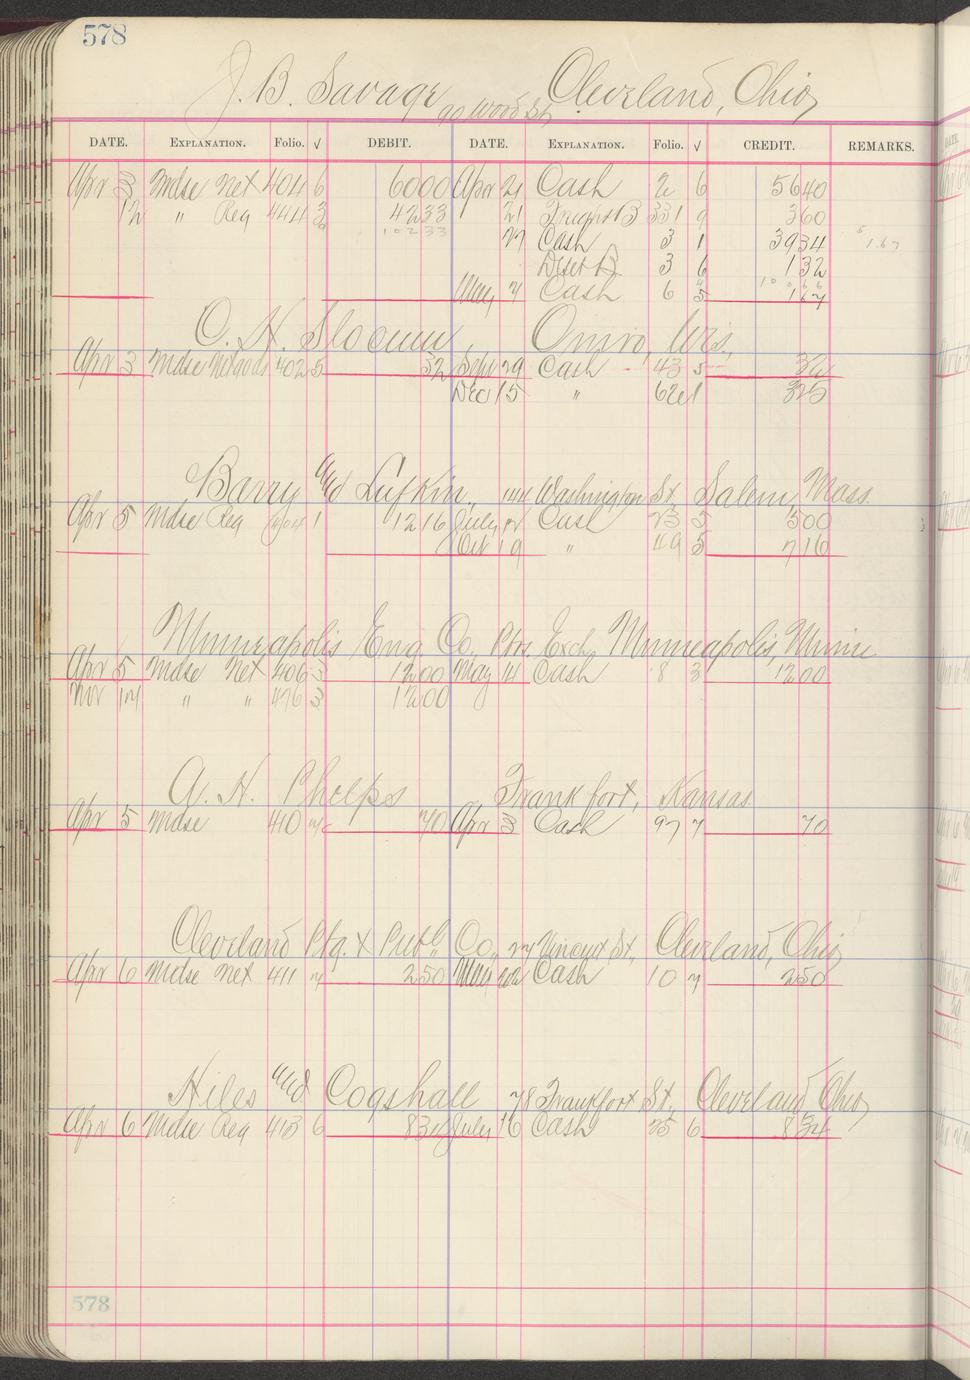 578
J. B. Savage 90 Wood St., Cleveland, Ohio
DATE. EXPLANATION. Folio. √ DEBIT. DATE. EXPLANATION. Folio. √ CREDIT. REMARKS.
Apr 3 Mdse Net 404 6 6000 Apr 21 Cash 2 6 5640
12 " Reg 444 3 4233 21 Freight B 331 9 360
10233 27 Cash 3 1 3934 1.67
Disct B 3 6 132
10066
May 7 Cash 6 5 167
O. H. Slocum, Omro, Wis.,
Apr 3 Mdse 402 5 32 Sept 29 Cash 43 5 32
Dec 15 " 62 1 325
Barry and Lufkin, 144 Washington St. Salem, Mass.
Apr 5 Mdse Reg 404 1 1216 July 12 Cash 23 5 500
Oct 19 " 49 5 716
Minneapolis Eng. Co., Ptrs. Exch. Minneapolis, Minn
Apr 5 Mdse Net 406 3 1200 May 14 Cash 8 3 1200
Nov 17 " " 476 3 1200
A. H. Phelps Frankfort, Kansas.
Apr 5 Mdse 410 70 Apr 3 Cash 97 7 70
Cleveland Ptg. & Publ. Co., 27 Vincent St., Cleveland, Ohio
Apr 6 Mdse Net 411 7 250 May 22 Cash 10 7 250
Hiles and Cogshall 78 Frankfort St., Cleveland, Ohio
Apr 6 Mdse Reg 413 6 834 July 16 Cash 25 6 834
578